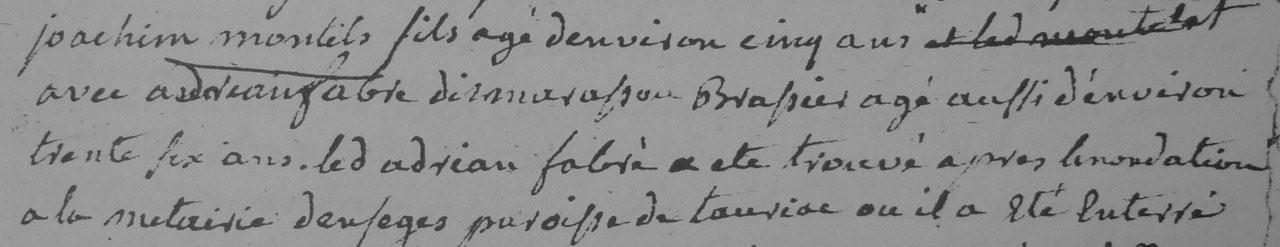 joachim montils fils agé denviron cinq ans et led montilset
avec adrian fabre dit marassou Brassier agé aussi d'environ
trente six ans. led adrian fabré a ete trouvé apres linondation
a la metairie denseges paroisse de tauriac ou il a Eté Enterré